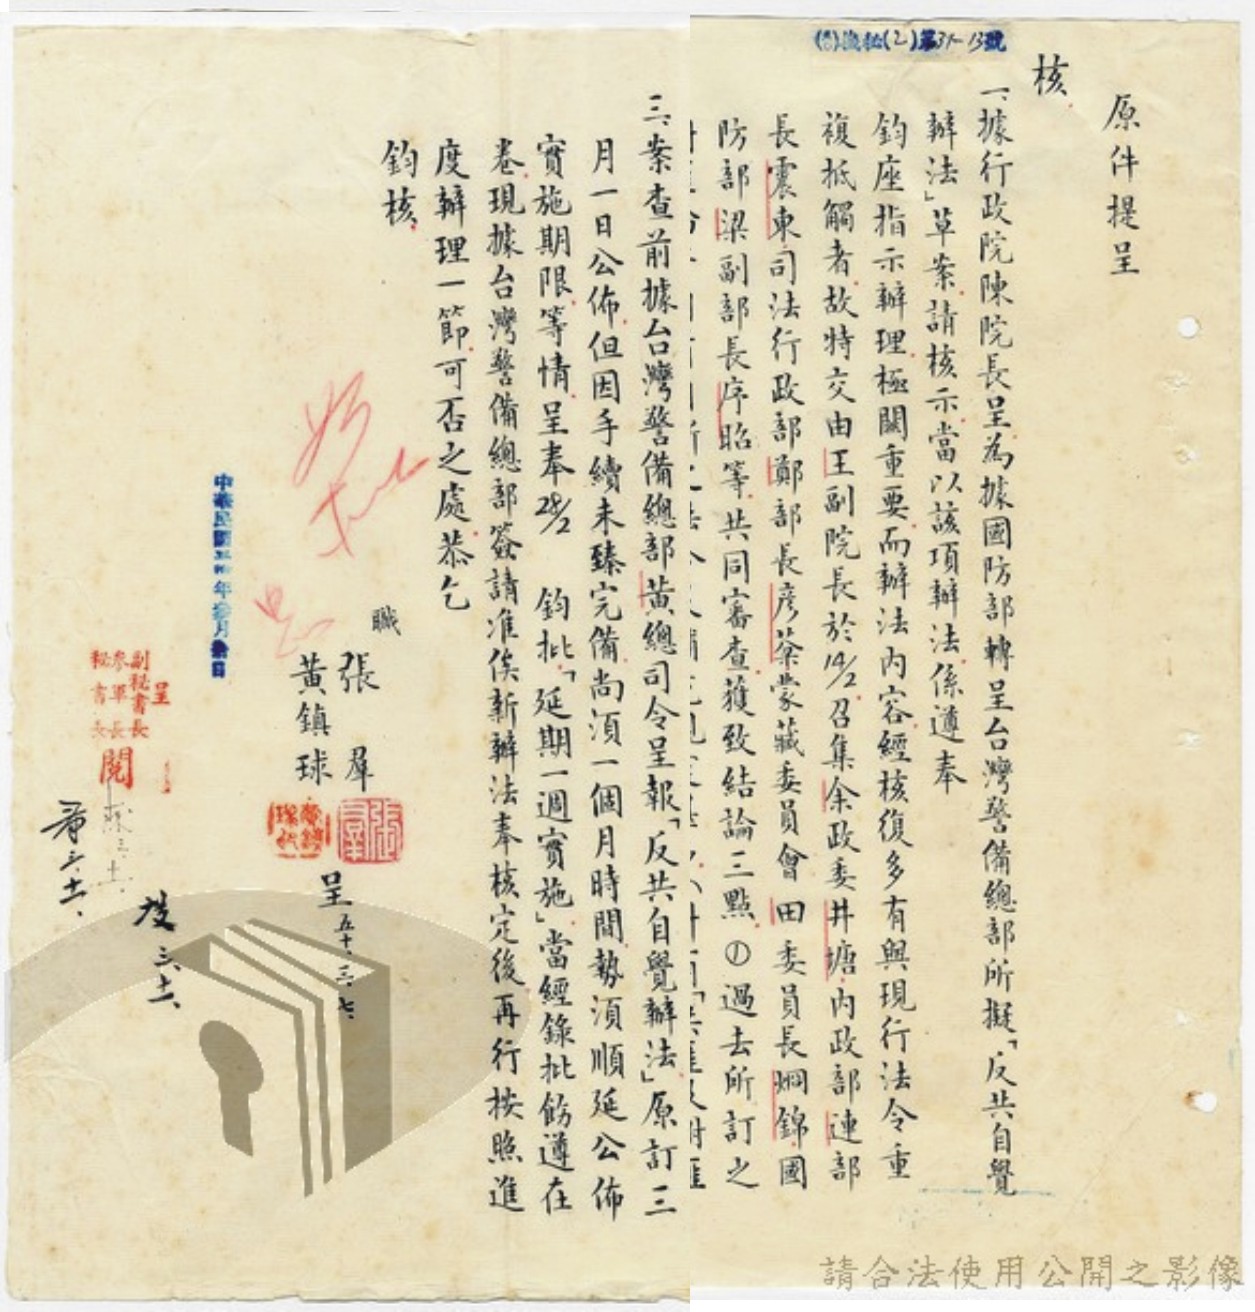 原件提呈
核
一、據行政院陳院長呈為據國防部轉呈台灣警備總部所擬「反共自覺
辦法」草案請核示當以該項辦法係遵奉
鈞座指示辦理極關重要而辦法內容經核復多有與現行法令重
複抵觸者故特交由王副院長於14/2召集余政委井塘內政部連部
長震東司法行政部鄭部長彥棻蒙藏委員會田委員長炯錦國
防部梁副部長序昭等共同審查獲致結論三點①過去所訂之
三、案查前據台灣警備總部黃總司令呈報「反共自覺辦法」原訂三
月一日公佈但因手續未臻完備尚須一個月時間勢須順延公佈
實施期限等情呈奉28/2 鈞批「延期一週實施」當經錄批飭遵在
卷現據台灣警備總部簽請准俟新辦法奉核定後再行按照進
度辦理一節可否之處恭乞
鈞核
職
張群
黃鎮球
呈
五十、三、七、
呈
副秘書長
參軍長
秘書長
閱
三、十一、
三、十一、
三、十一、
請合法使用公開之影像